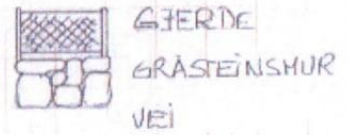 GJERDE
GRÅSTEINSMUR
VEI